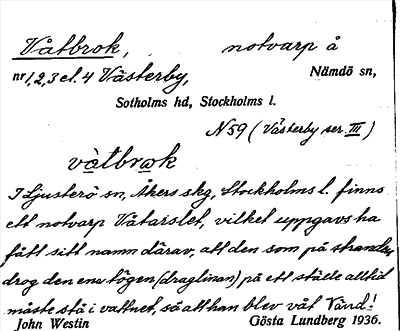 Våtbrok, notvarp å
nr 1, 2, 3 el. 4 Västerby, Nämdö sn,
Sotholms hd, Stockholms l.
N 59 (Västerby ser. III)
våtbrωk
I Ljusterö sn, Åkers skg, Stockholms l. finns
ett notvarp Våtarslet, vilket uppgavs ha
fått sitt namn därav, att den som på stranden
drog den ena tögen (draglinan) på ett ställe alltid
måste stå i vattnet, så att han blev våt Vänd!
John Westin Gösta Lundberg 1936.